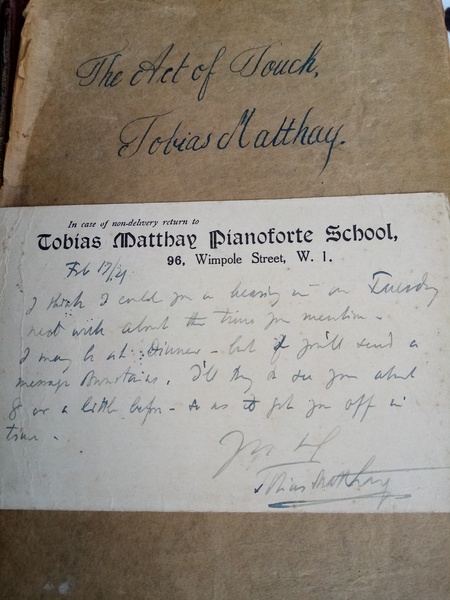 The Act of Touch,
Tobias Matthay.
In case of non-delivery return to
Tobias Matthay Pianoforte School,
96, Wimpole Street, W. 1.
Feb 17/21
I think I could you a hearing on Tuesday
next week about the time you mention -
I may be at dinner - but if you'll send a
message upstairs, I'll try to see you about
8 or a little before - so as to get you off in
time -
Tobias Matthay